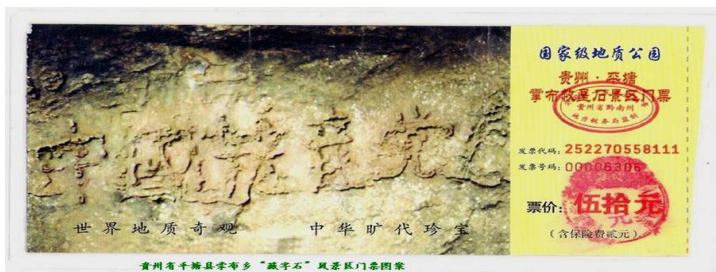 中国共產党亡
世界地质奇观 中华旷代珍宝
国家级地质公园
贵州·平塘
掌布救星石景区门票
贵州省黔南州
地方税务局监制
发票代码:252270558111
发票号码:00006306
票价:伍拾元
(含保险费贰元)
贵州省平塘县掌布乡“藏字石”风景区门票图案